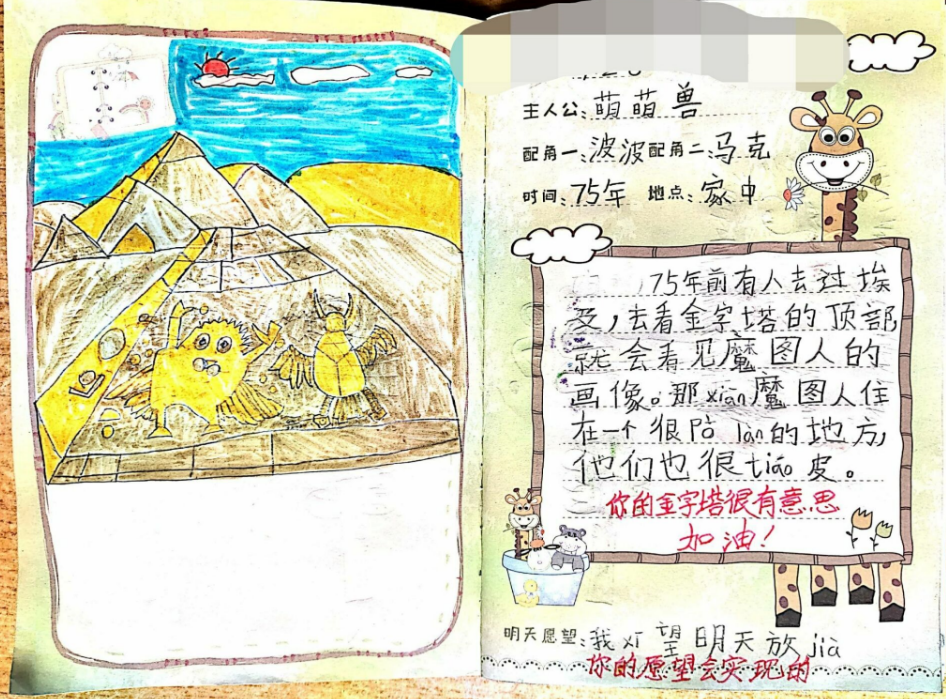 主人公:萌萌兽
配角一:波波 配角二:马克
时间:75年 地点:家中
75年前有人去过埃
及,去看金字塔的顶部,
就会看见魔图人的
画像。那xiān魔图人住
在一个很陷lán的地方,
他们也很tiáo皮。
你的金字塔很有意思
加油!
明天愿望:我xī望明天放jià
你的愿望会实现的